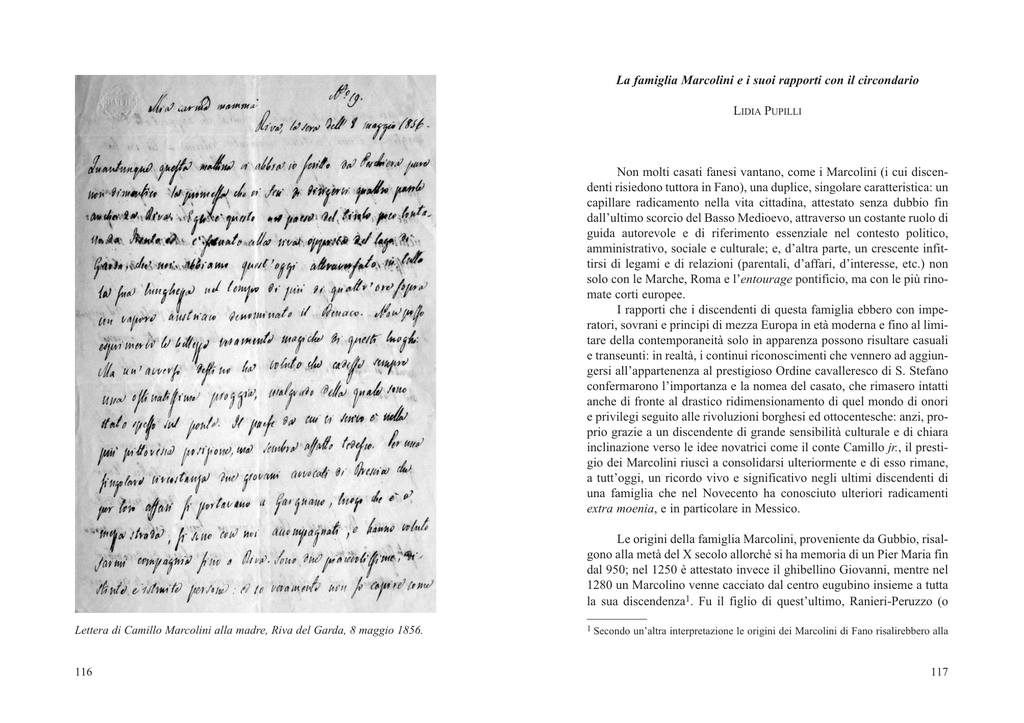 N.º 19.
Mia carma mamma
Riva, la sera dell' 8 maggio 1856.
Quantunque questa mattina vi abbia io scritto da Peschiera pure
non dimentico la promessa che vi feci di dirigervi quattro parole
anche da Riva. È questo un paese del Tirolo, poco lonta
Trento ed è situato alla riva opposta del lago di
Garda, che noi abbiamo quest'oggi attraversato in tutta
la sua lunghezza nel tempo di più di quattr'ore sopra
un vapore austriaco denominato il Benaco. Non posso
esprimervi le bellezze veramente magiche di questi luoghi.
Ma un'avverso destino ha voluto che cadesse sempre
una ostinatissima pioggia, malgrado della quale sono
stato spesso sul ponte. Il paese da cui vi scrivo è nella
più pittoresca posizione, ma sembra affatto tedesco. Per una
singolare circostanza due giovani avvocati di Brescia che
per loro affari si portavano a Gargnano, luogo che è a
mezza strada, si sono con noi accompagnati, e hanno voluto
farmi compagnia fino a Riva. Sono due piacevolissime, di-
stinte, e istruite persone: ed io veramente non so capire come
Lettera di Camillo Marcolini alla madre, Riva del Garda, 8 maggio 1856.
116
La famiglia Marcolini e i suoi rapporti con il circondario
LIDIA PUPILLI
Non molti casati fanesi vantano, come i Marcolini (i cui discen-
denti risiedono tuttora in Fano), una duplice, singolare caratteristica: un
capillare radicamento nella vita cittadina, attestato senza dubbio fin
dall'ultimo scorcio del Basso Medioevo, attraverso un costante ruolo di
guida autorevole e di riferimento essenziale nel contesto politico,
amministrativo, sociale e culturale; e, d'altra parte, un crescente infit-
tirsi di legami e di relazioni (parentali, d'affari, d'interesse, etc.) non
solo con le Marche, Roma e l'entourage pontificio, ma con le più rino-
mate corti europee.
I rapporti che i discendenti di questa famiglia ebbero con impe-
ratori, sovrani e principi di mezza Europa in età moderna e fino al limi-
tare della contemporaneità solo in apparenza possono risultare casuali
e transeunti: in realtà, i continui riconoscimenti che vennero ad aggiun-
gersi all'appartenenza al prestigioso Ordine cavalleresco di S. Stefano
confermarono l'importanza e la nomea del casato, che rimasero intatti
anche di fronte al drastico ridimensionamento di quel mondo di onori
e privilegi seguito alle rivoluzioni borghesi ed ottocentesche: anzi, pro-
prio grazie a un discendente di grande sensibilità culturale e di chiara
inclinazione verso le idee novatrici come il conte Camillo jr., il presti-
gio dei Marcolini riuscì a consolidarsi ulteriormente e di esso rimane,
a tutt'oggi, un ricordo vivo e significativo negli ultimi discendenti di
una famiglia che nel Novecento ha conosciuto ulteriori radicamenti
extra moenia, e in particolare in Messico.
Le origini della famiglia Marcolini, proveniente da Gubbio, risal-
gono alla metà del X secolo allorché si ha memoria di un Pier Maria fin
dal 950; nel 1250 è attestato invece il ghibellino Giovanni, mentre nel
1280 un Marcolino venne cacciato dal centro eugubino insieme a tutta
la sua discendenza1. Fu il figlio di quest'ultimo, Ranieri-Peruzzo (o
1 Secondo un'altra interpretazione le origini dei Marcolini di Fano risalirebbero alla
117